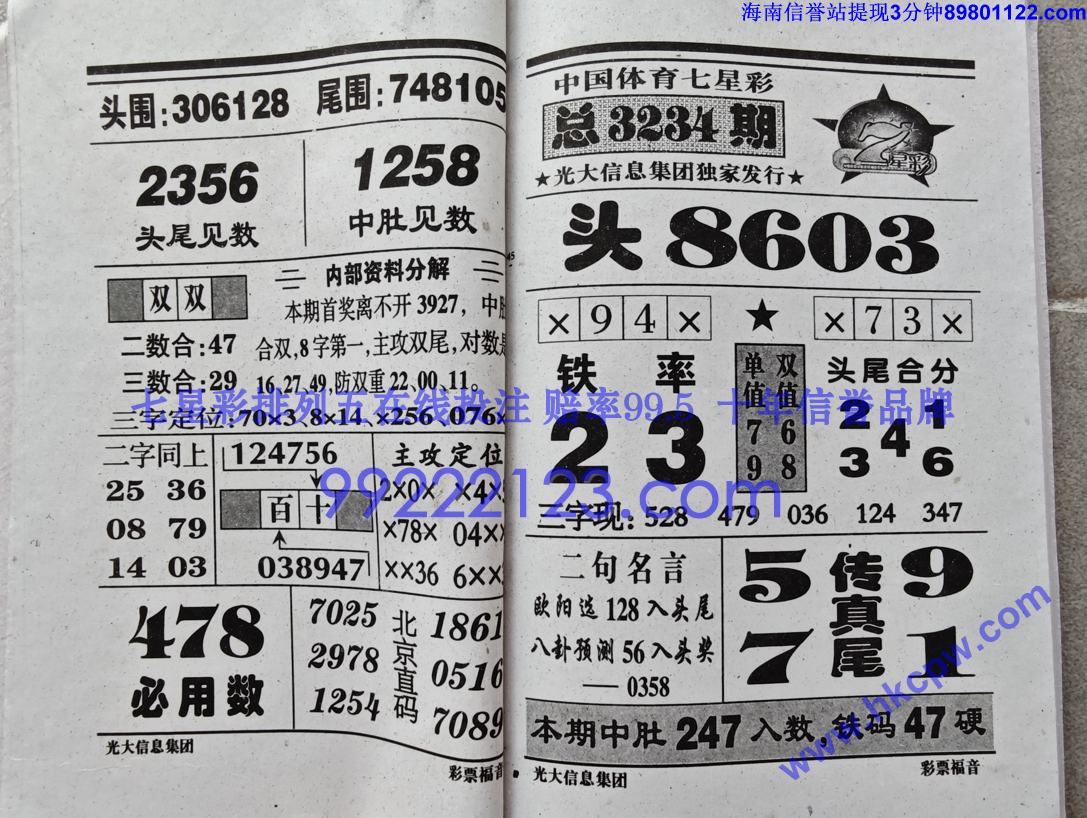 海南信誉站提现3分钟89801122.com
头围:306128 尾围:748105
2356
头尾见数
1258
中肚见数
双双
二数合:47
三数合:29
三字定位:70×3、8×14、×256、076×
内部资料分解
本期首奖离不开3927,中肚
合双,8字第一,主攻双尾,对数是
16,27,49,防双重22、00、11。
二字同上
25 36
08 79
14 03
124756
百十
038947
主攻定位
2×0× ×4×
×78× 04××
××36 6××
478
必用数
7025
2978
1254
北京直码
1861
0516
7089
光大信息集团
彩票福音
中国体育七星彩
总3234期
★光大信息集团独家发行★
7星彩
头8603
×94× ★ ×73×
铁率
23
单值79
双值68
头尾合分
2 1
4
3 6
三字现: 528 479 036 124 347
二句名言
欧阳选128入头尾
八卦预测56入头奖
——0358
5 9
传真尾
7 1
本期中肚247入数,铁码47硬
光大信息集团
彩票福音
七星彩排列五在线投注 赔率99.5 十年信誉品牌
99222123.com
www.hkcpw.com